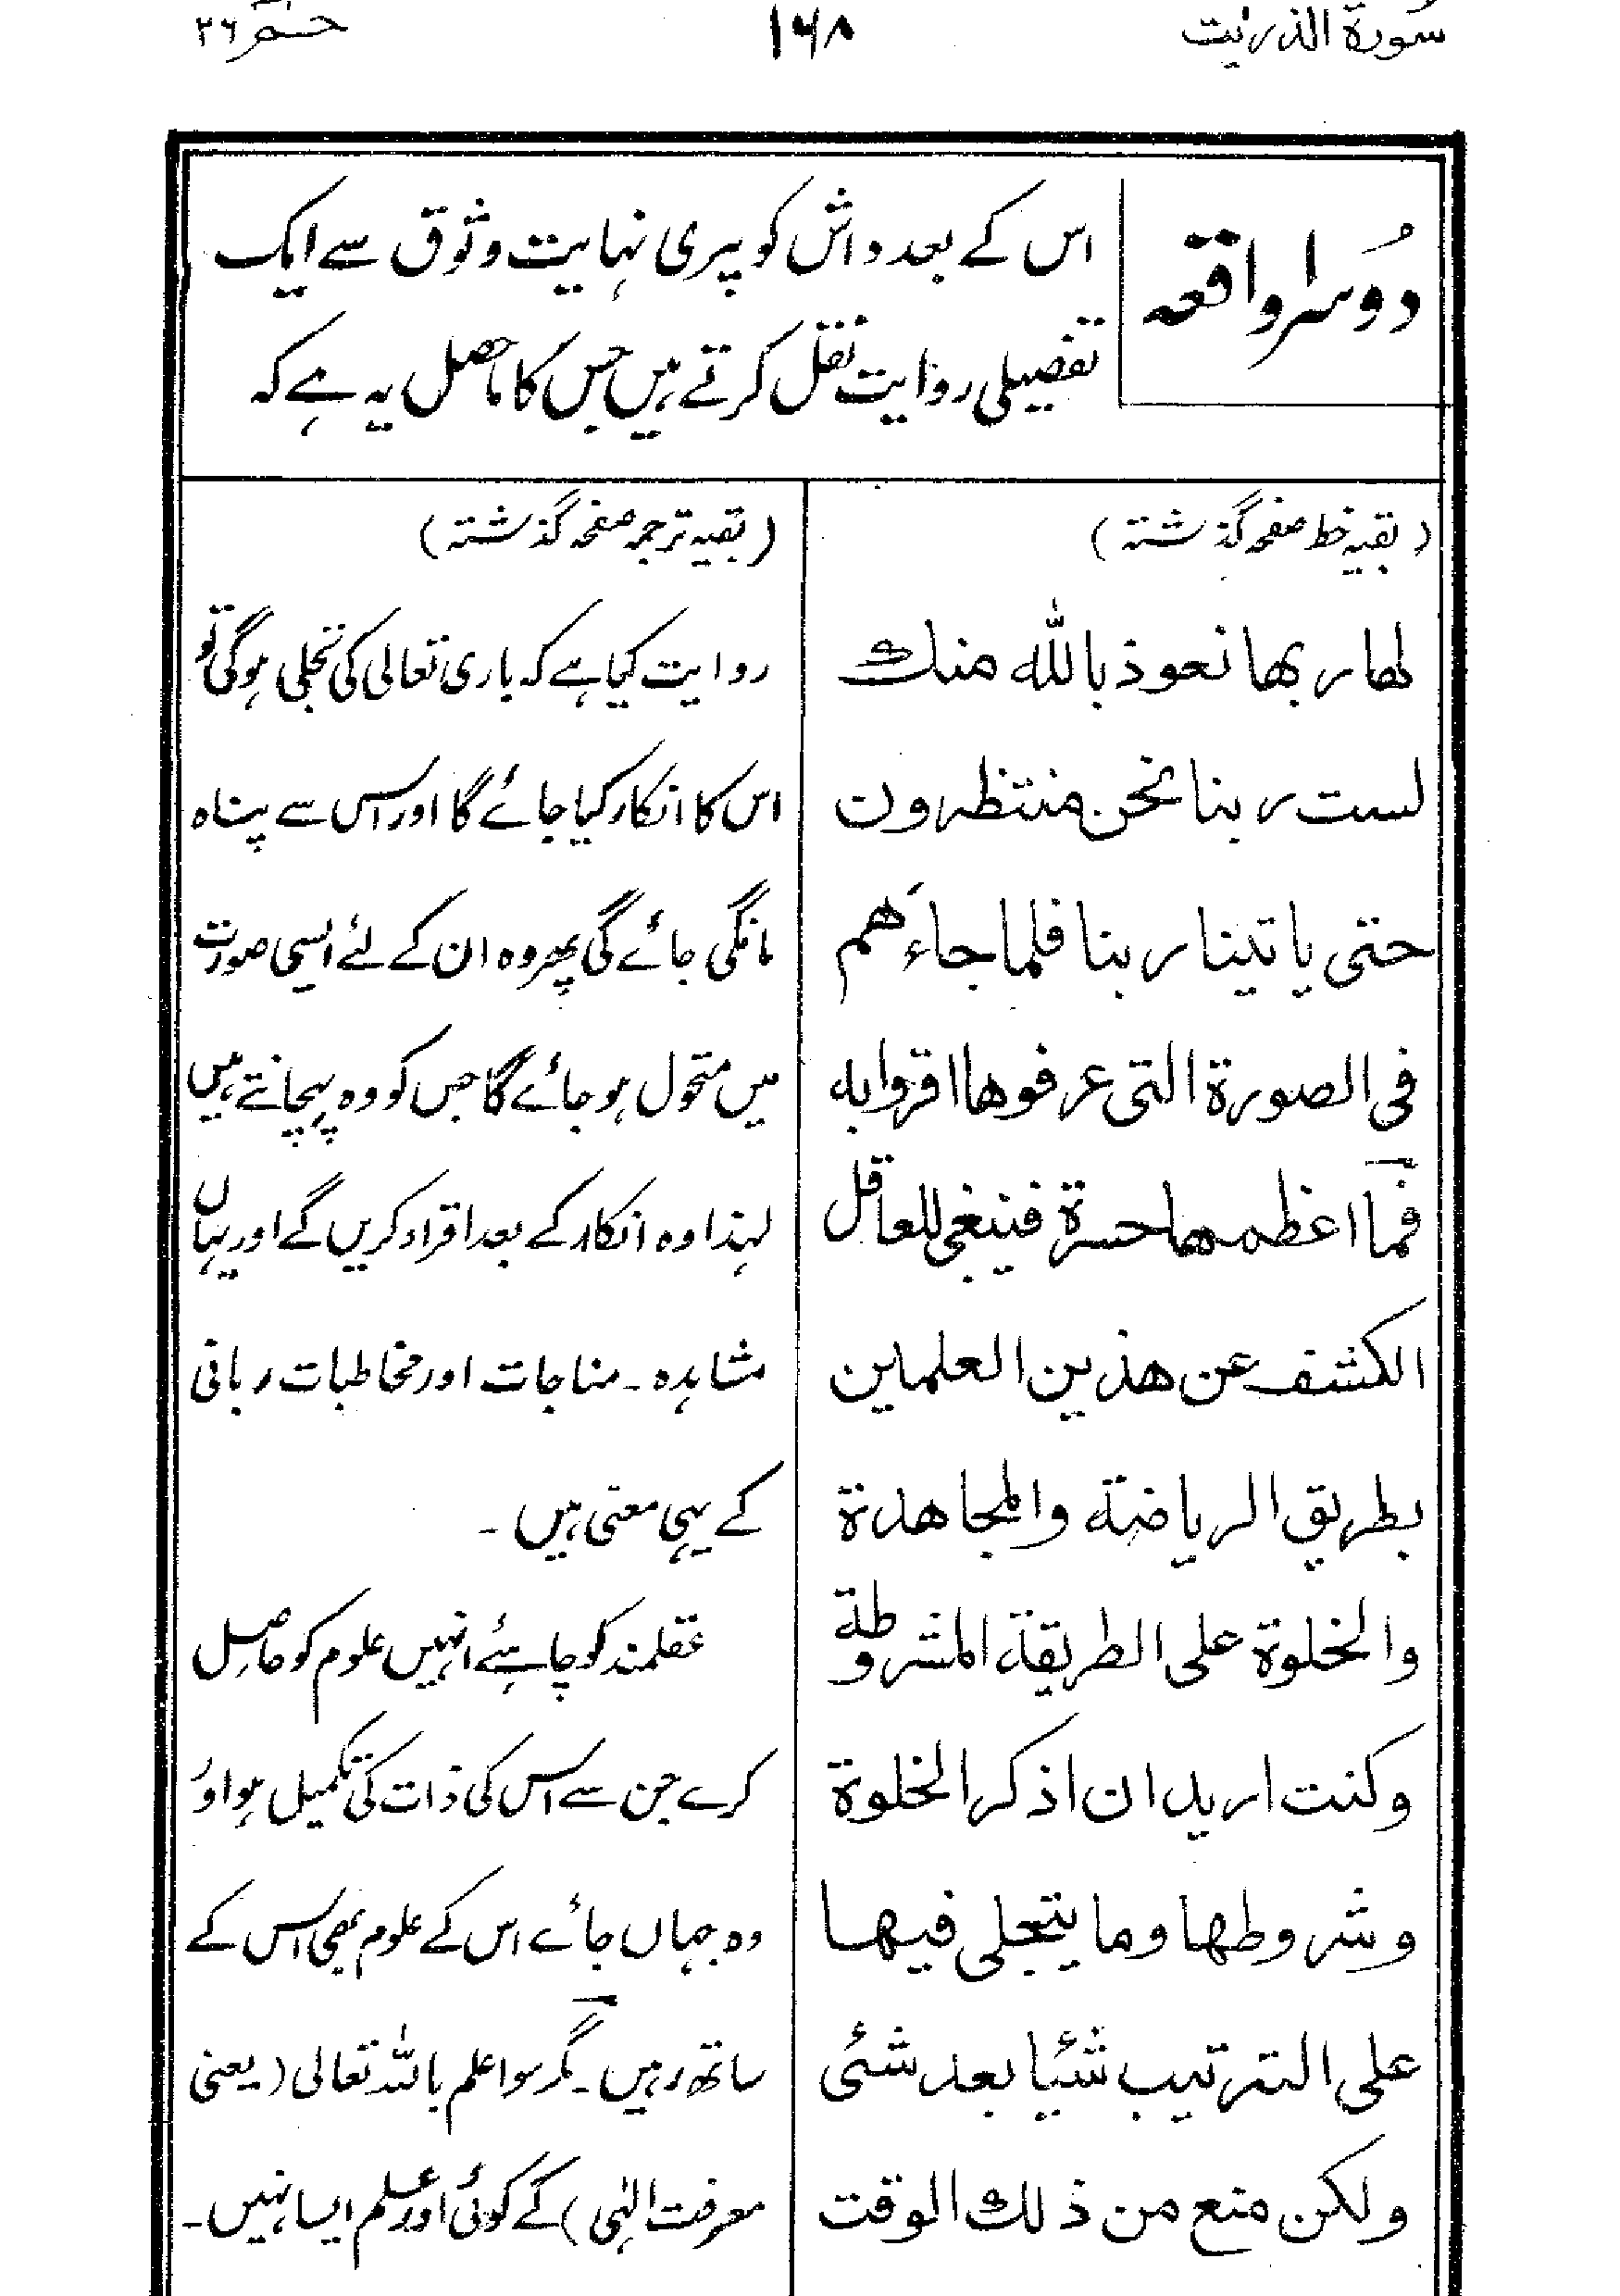 سورة الذریٰت ۱۶۸ حٰمٓ ۲۶
دُوسرا واقعہ
اس کے بعد واش کو پری نہایت وثوق سے ایک
تفصیلی روایت نقل کرتے ہیں جس کا ماحصل یہ ہے کہ
(بقیہ خط صفحہ گذشتہ)
لها ربها نعوذ بالله منك
لست ربنا نحن منتظرون
حتى ياتينا ربنا فلما جاءَهم
فى الصورة التى عرفوها اقروا به
فما اعظمها حسرة فينبغى للعاقل
الكشف عن هذين العلمين
بطريق الرياضة والمجاهدة
والخلوة على الطريقة المشروطة
وكنت اريد ان اذكر الخلوة
وشروطها وما يتجلى فيها
على الترتيب شئيا بعد شئى
ولكن منع من ذلك الوقت
(بقیہ ترجمہ صفحہ گذشتہ)
روایت کیا ہے کہ باری تعالی کی تجلی ہوگی تو
اس کا انکار کیا جائے گا اور اس سے پناہ
مانگی جائے گی پھر وہ ان کے لئے ایسی صورت
میں متحول ہو جائے گا جس کو وہ پہچانتے ہیں
لہذا وہ انکار کے بعد اقرار کریں گے اور یہاں
مشاہدہ ۔ مناجات اور مخاطبات ربانی
کے یہی معنی ہیں ۔
عقلمند کو چاہئے انہیں علوم کو حاصل
کرے جن سے اس کی ذات کی تکمیل ہو اور
وہ جہاں جائے اس کے علوم بھی اس کے
ساتھ رہیں ۔ مگر سوا علم باللہ تعالی (یعنی
معرفت الٰہی) کے کوئی اور علم ایسا نہیں ۔